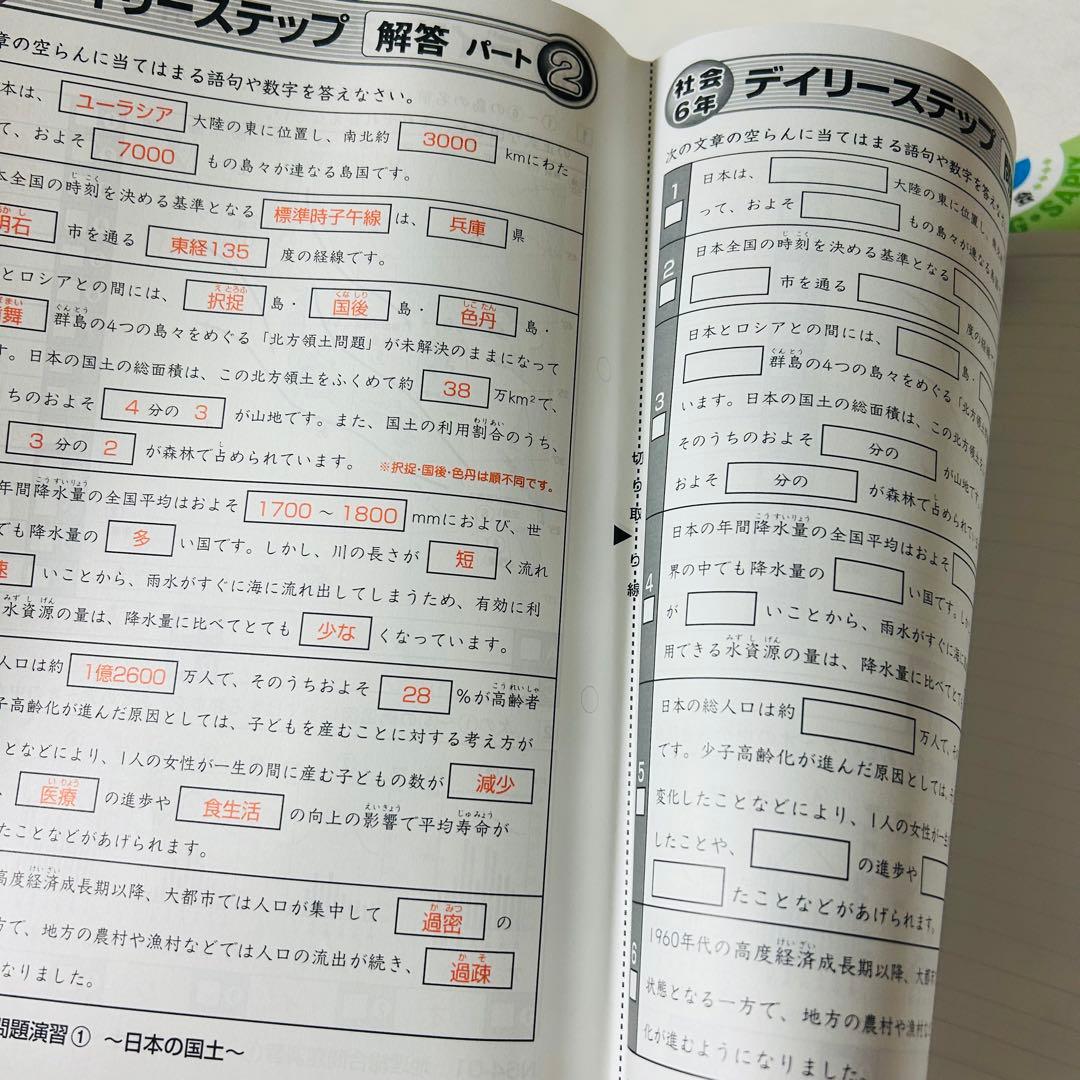 イリーステップ 解答 パート2
章の空らんに当てはまる語句や数字を答えなさい。
本は、 ユーラシア 大陸の東に位置し、南北約 3000 kmにわた
て、およそ 7000 もの島々が連なる島国です。
本全国の時刻を決める基準となる 標準時子午線 は、 兵庫 県
明石 市を通る 東経135 度の経線です。
とロシアとの間には、 択捉 島・ 国後 島・ 色丹 島・
舞 群島の4つの島々をめぐる「北方領土問題」が未解決のままになって
す。日本の国土の総面積は、この北方領土をふくめて約 38 万km²で、
ちのおよそ 4分の3 が山地です。また、国土の利用割合のうち、
3分の2 が森林で占められています。 ※択捉・国後・色丹は順不同です。
年間降水量の全国平均はおよそ 1700～1800 mmにおよび、世
でも降水量の 多 い国です。しかし、川の長さが 短 く流れ
速 いことから、雨水がすぐに海に流れ出してしまうため、有効に利
水資源の量は、降水量に比べてとても 少な くなっています。
人口は約 1億2600 万人で、そのうちおよそ 28 %が高齢者
子高齢化が進んだ原因としては、子どもを産むことに対する考え方が
ことなどにより、1人の女性が一生の間に産む子どもの数が 減少
、 医療 の進歩や 食生活 の向上の影響で平均寿命が
たことなどがあげられます。
高度経済成長期以降、大都市では人口が集中して 過密 の
方で、地方の農村や漁村などでは人口の流出が続き、 過疎
なりました。
問題演習① ～日本の国土～
切り取り線
社会6年 デイリーステップ
次の文章の空らんに当てはまる語句や数字を答えな
1 日本は、 大陸の東に位置し、南
って、およそ もの島々が連なる島国
2 日本全国の時刻を決める基準となる
市を通る 度の経線
3 日本とロシアとの間には、 島・
群島の4つの島々をめぐる「北方領
います。日本の国土の総面積は、この北方領土を
そのうちのおよそ 分の が山地です
およそ 分の が森林で占められてい
4 日本の年間降水量の全国平均はおよそ
界の中でも降水量の い国です。しか
が いことから、雨水がすぐに海に
用できる水資源の量は、降水量に比べてとて
5 日本の総人口は約 万人で、そ
です。少子高齢化が進んだ原因としては、子
変化したことなどにより、1人の女性が一生
したことや、 の進歩や
たことなどがあげられます。
6 1960年代の高度経済成長期以降、大都市
状態となる一方で、地方の農村や漁村な
化が進むようになりました。